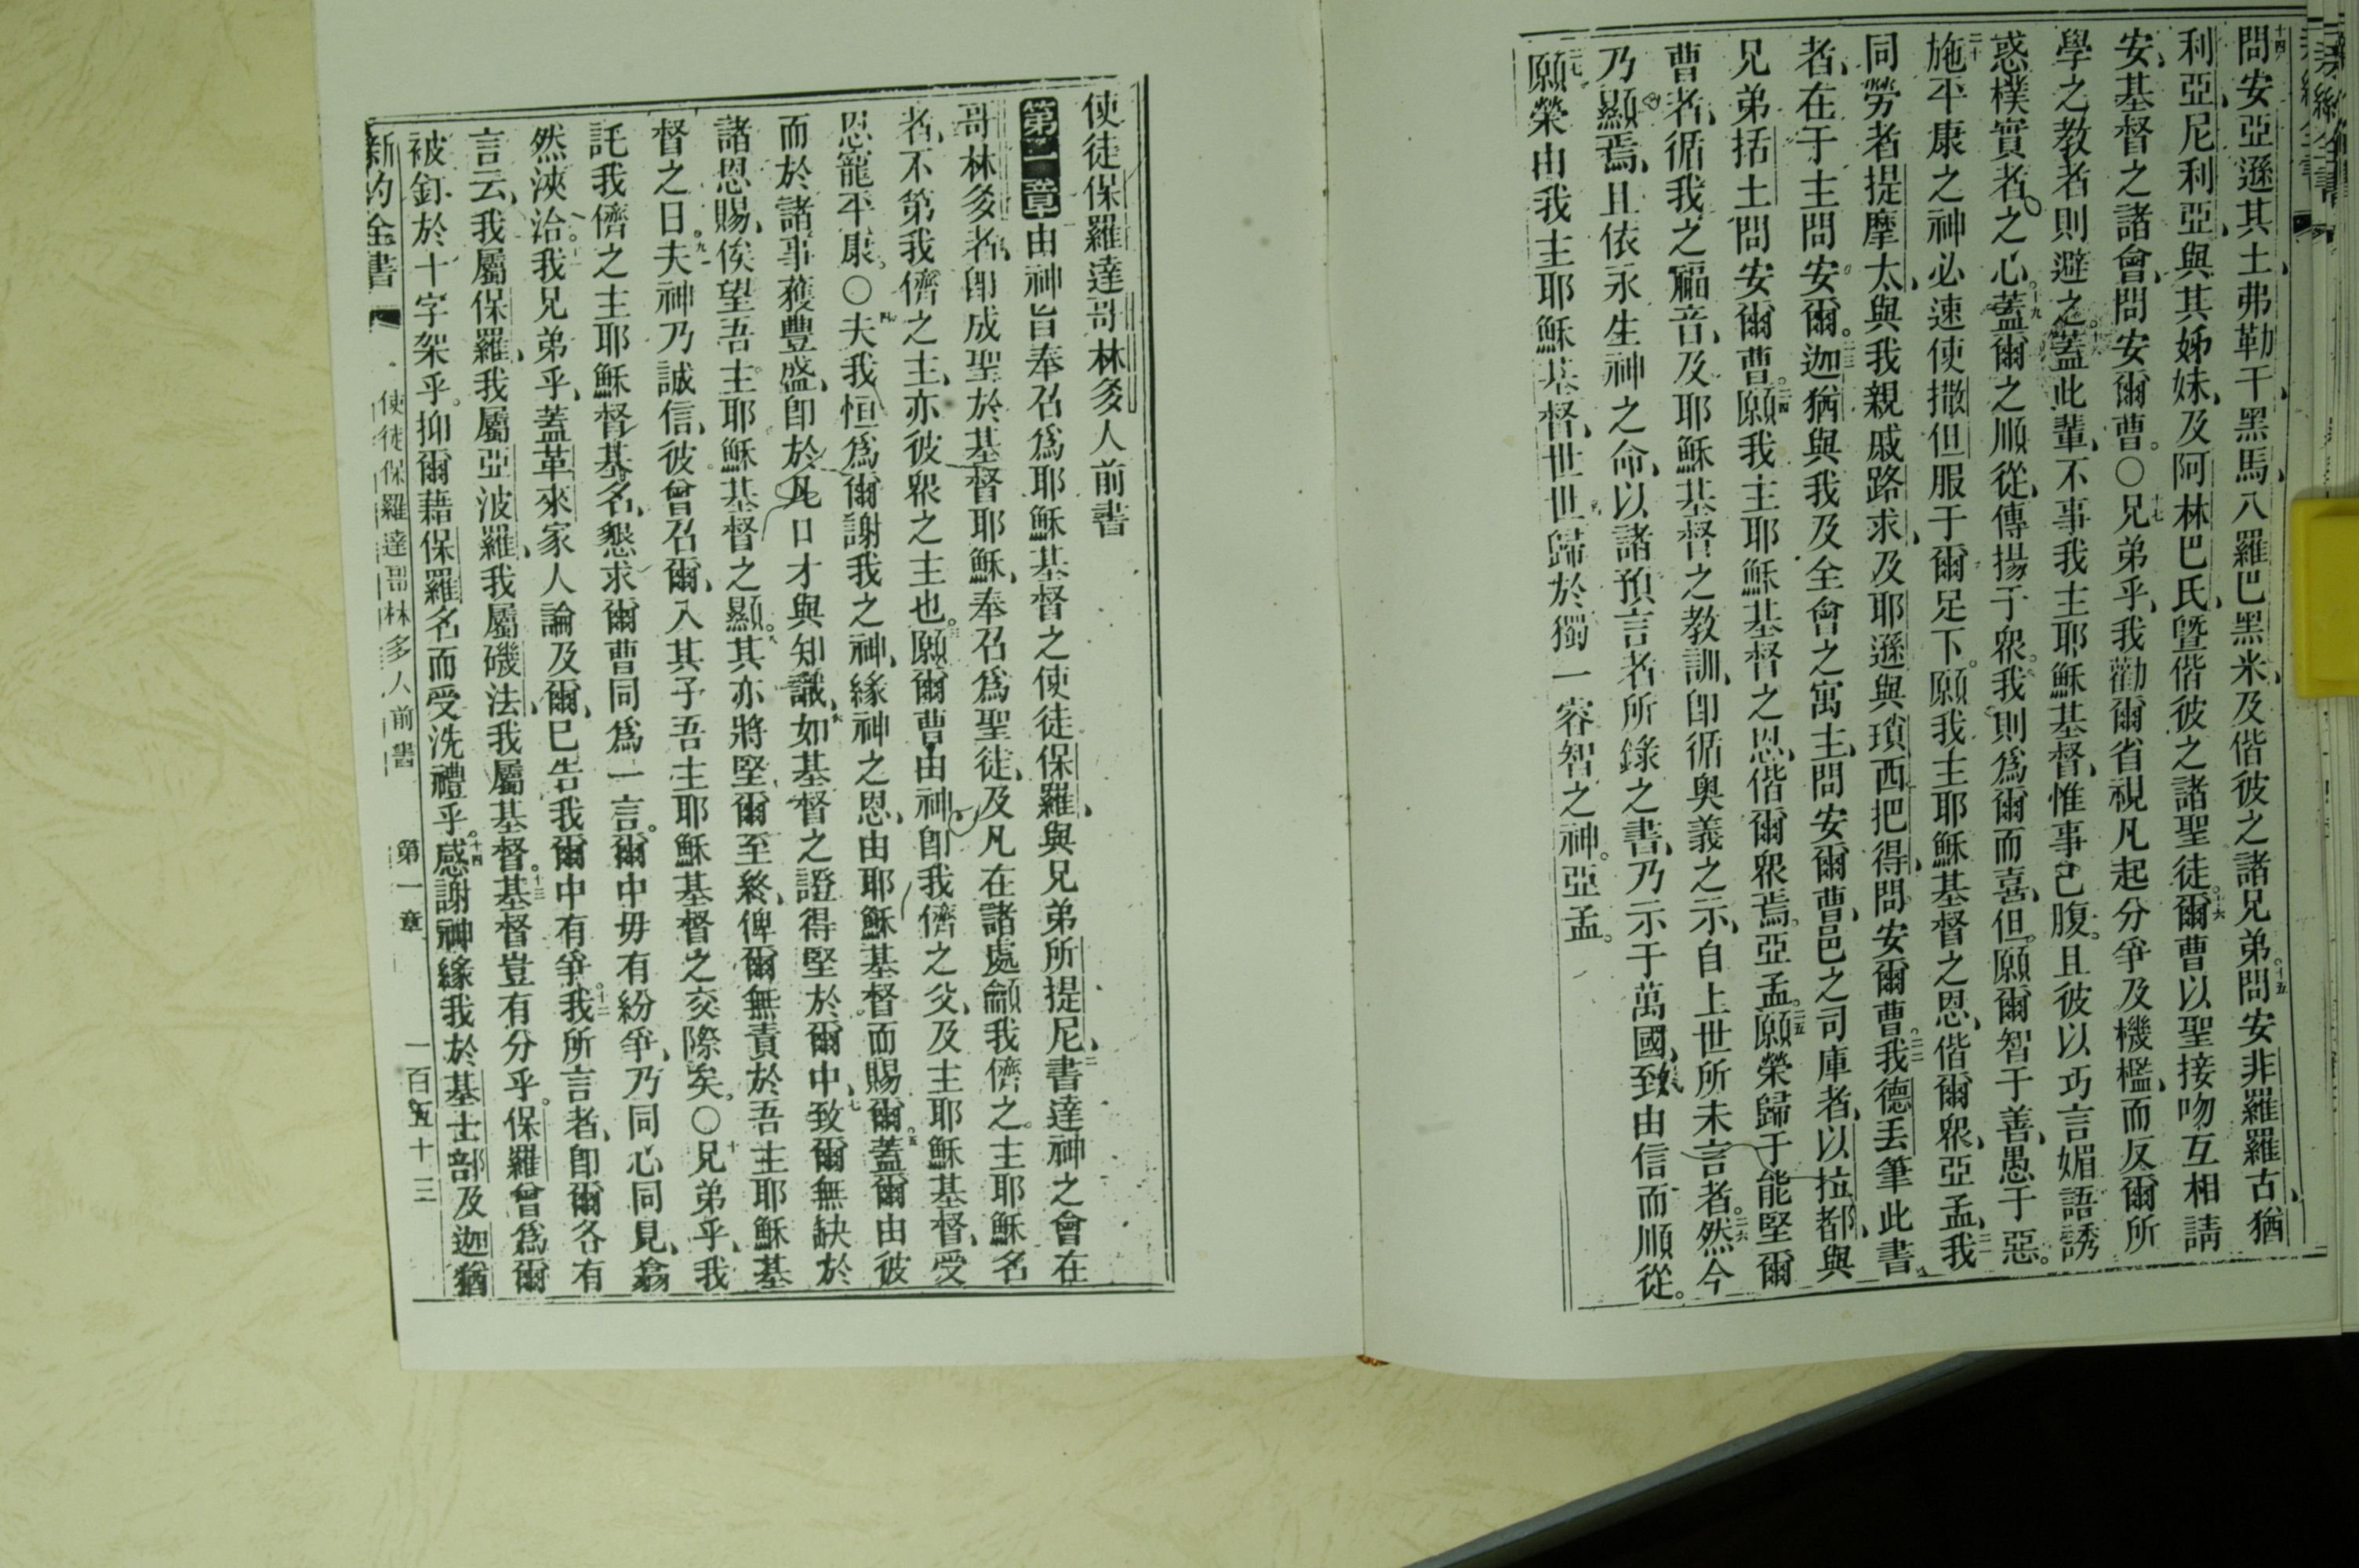 十四問安亞遜其土、弗勒干、黑馬、八羅巴黑米、及偕彼之諸兄弟。十五問安非羅羅古、猶
利亞、尼利亞、與其姊妹、及阿林巴氏、曁偕彼之諸聖徒。十六爾曹以聖接吻互相請
安、基督之諸會、問安爾曹。○十七兄弟乎、我勸爾省視凡起分爭及機檻、而反爾所
學之教者、則避之。十八蓋此輩、不事我主耶穌基督、惟事己腹。且彼以巧言媚語誘
惑樸實者之心。十九蓋爾之順從、傳揚于衆。我則爲爾而喜、但願爾智于善、愚于惡。
二十施平康之神必速使撒但服于爾足下。願我主耶穌基督之恩、偕爾衆、亞孟、二一我
同勞者提摩太、與我親戚路求、及耶遜與瑣西把得、問安爾曹。二二我德丟筆此書
者、在于主問安爾。二三迦猶與我及全會之寓主、問安爾曹、邑之司庫者、以拉都、與
兄弟括土問安爾曹。二四願我主耶穌基督之恩、偕爾衆焉。亞孟。二五願榮歸于能堅爾
曹者、循我之福音、及耶穌基督之教訓、卽循奥義之示、自上世所未言者。二六然今
乃顯焉、且依永生神之命、以諸預言者所錄之書、乃示于萬國、致由信而順從。
二七願榮由我主耶穌基督、世世歸於獨一睿智之神。亞孟。
使徒保羅達哥林多人前書
第一章由神旨奉召爲耶穌基督之使徒保羅、與兄弟所提尼、二書達神之會在
哥林多者、卽成聖於基督耶穌、奉召爲聖徒、及凡在諸處籲我儕之主耶穌名
者、不第我儕之主、亦彼衆之主也。三願爾曹由神卽我儕之父、及主耶穌基督、受
恩寵平康。○四夫我恒爲爾謝我之神、緣神之恩、由耶穌基督而賜爾。五蓋爾由彼
而於諸事獲豐盛、卽於凡口才與知識、六如基督之證得堅於爾中、七致爾無缺於
諸恩賜、俟望吾主耶穌基督之顯。八其亦將堅爾至終、俾爾無責於吾主耶穌基
督之日。九夫神乃誠信、彼曾召爾、入其子吾主耶穌基督之交際矣。○十兄弟乎、我
託我儕之主耶穌基督名、懇求爾曹同爲一言。爾中毋有紛爭、乃同心同見、翕
然浹洽。十一我兄弟乎、蓋革來家人論及爾、已告我爾中有爭。十二我所言者、卽爾各有
言云、我屬保羅、我屬亞波羅、我屬磯法、我屬基督。十三基督豈有分乎。保羅曾爲爾
被釘於十字架乎。抑爾藉保羅名而受洗禮乎。十四感謝神緣我於基士部及迦猶
新約全書 使徒保羅達哥林多人前書 第一章 一百五十三